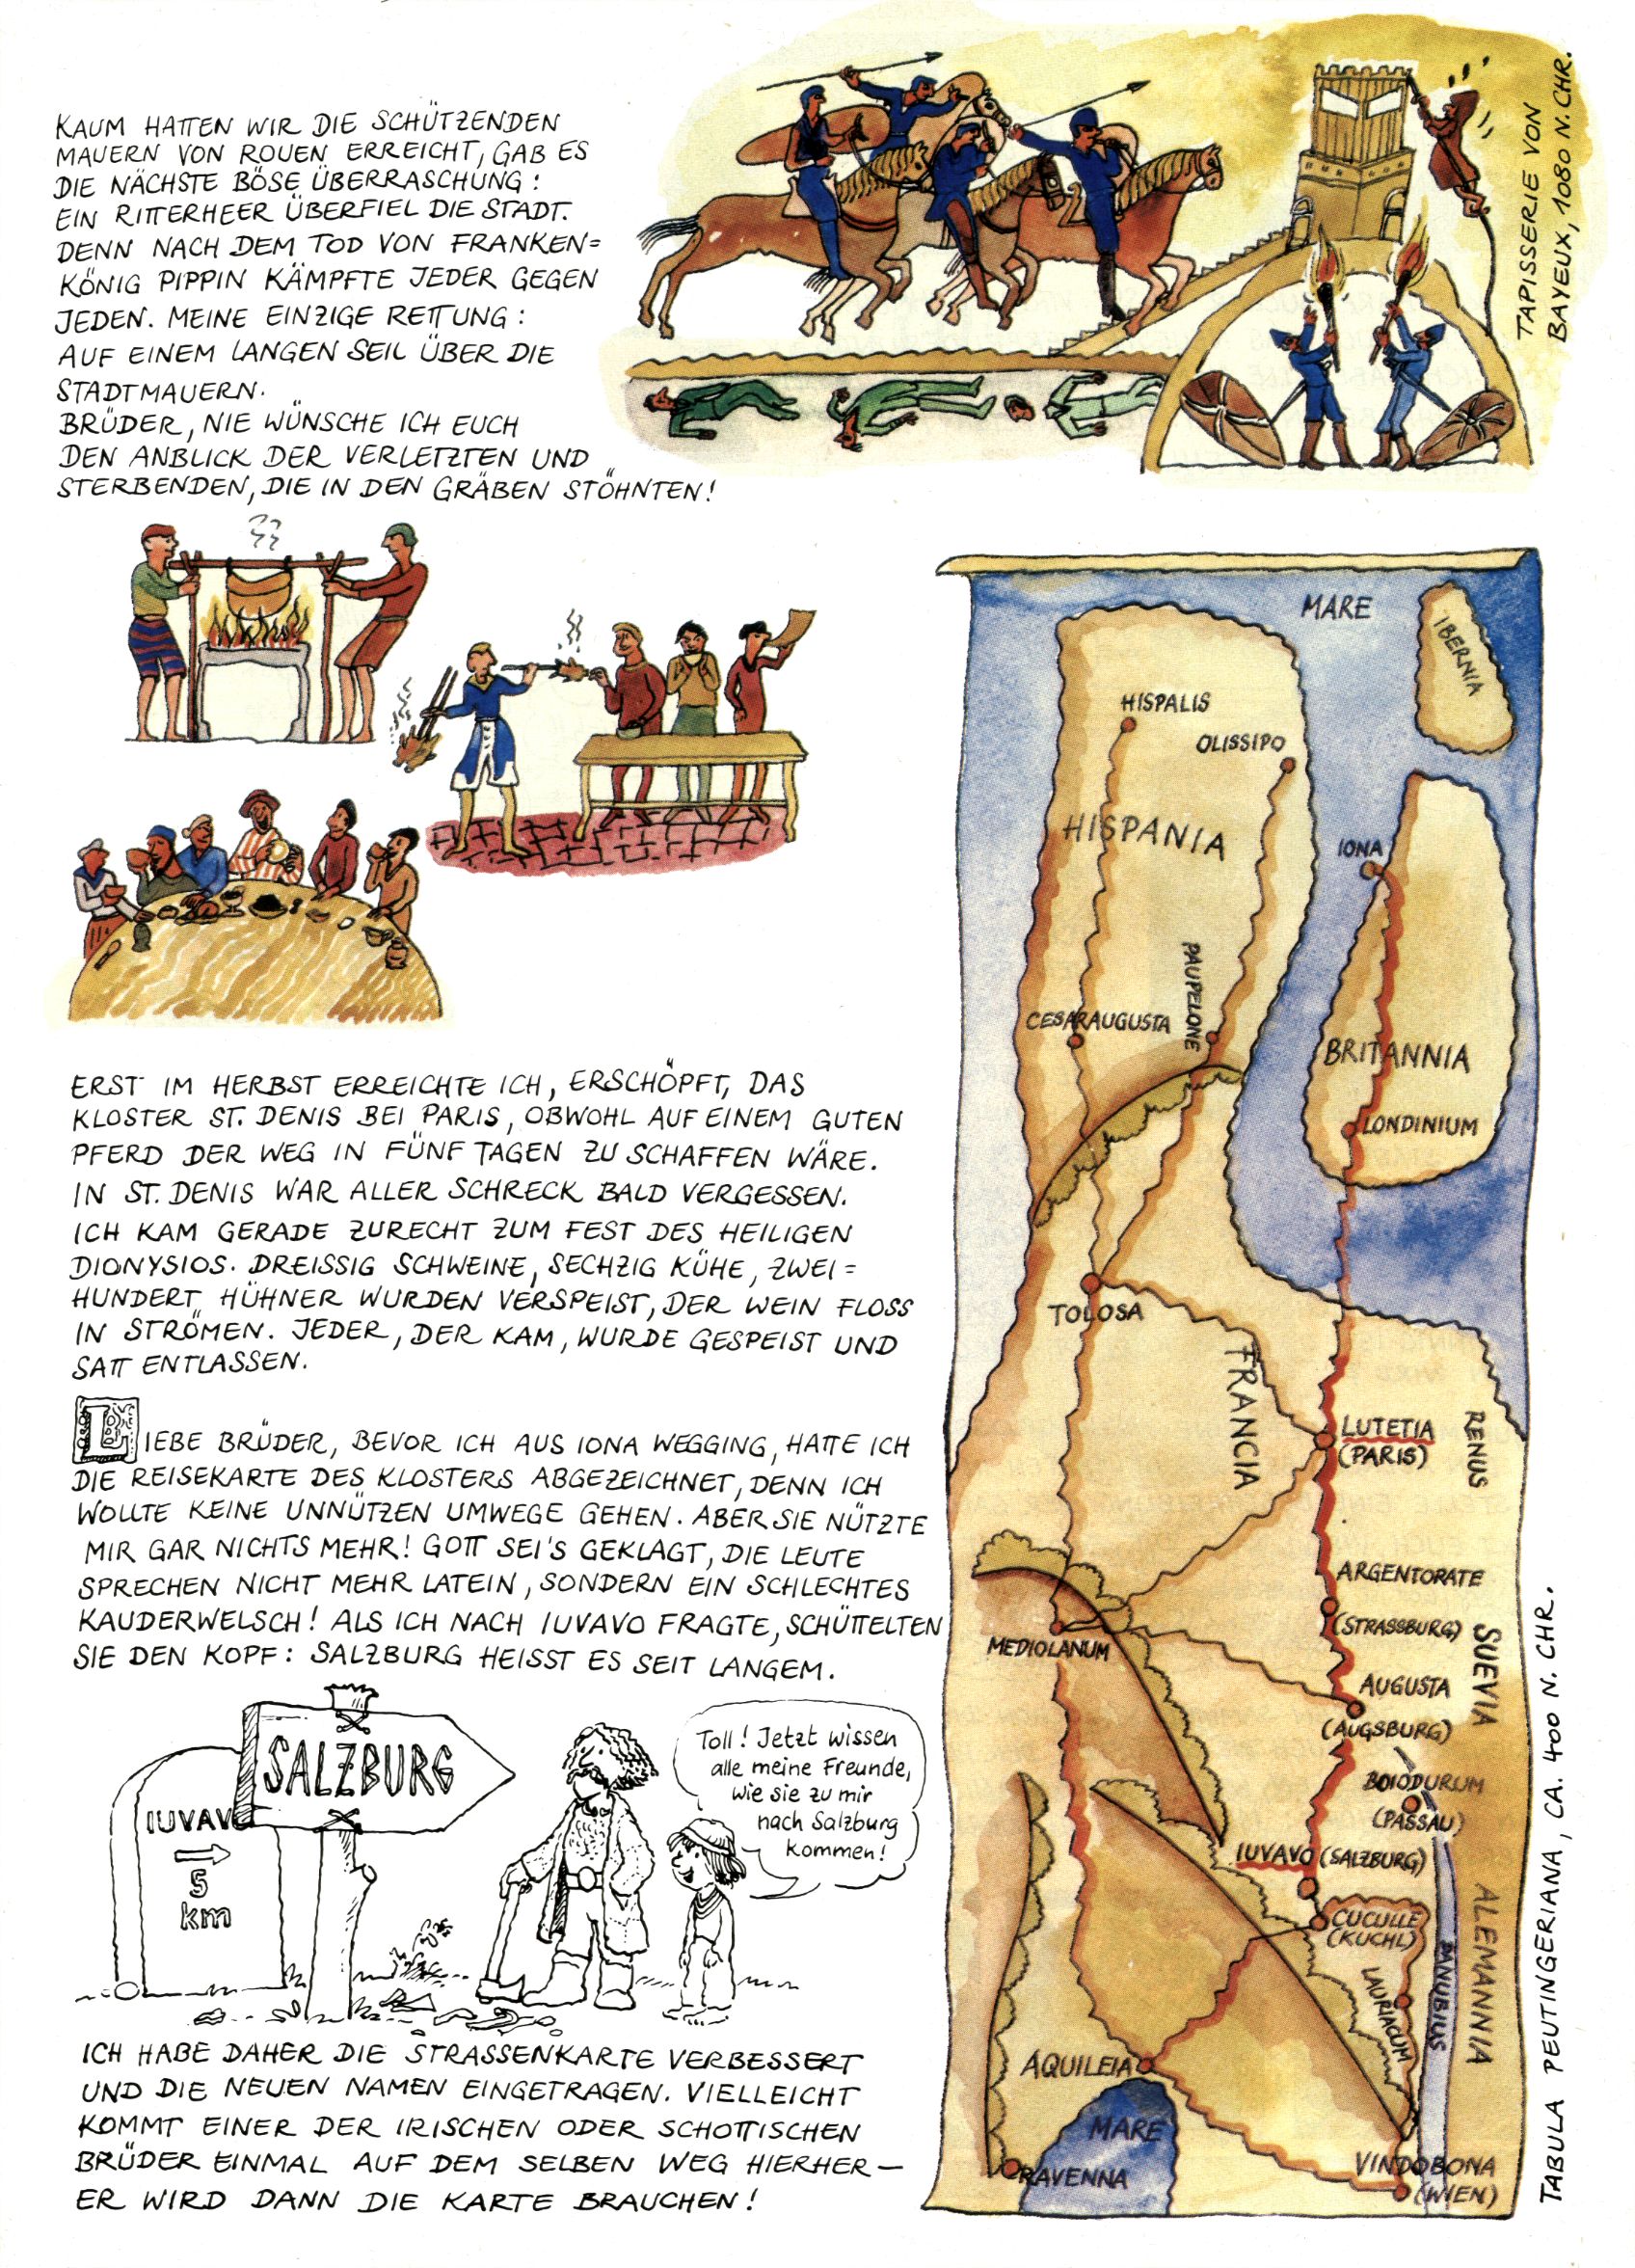 KAUM HATTEN WIR DIE SCHÜTZENDEN
MAUERN VON ROUEN ERREICHT, GAB ES
DIE NÄCHSTE BÖSE ÜBERRASCHUNG:
EIN RITTERHEER ÜBERFIEL DIE STADT.
DENN NACH DEM TOD VON FRANKEN=
KÖNIG PIPPIN KÄMPFTE JEDER GEGEN
JEDEN. MEINE EINZIGE RETTUNG:
AUF EINEM LANGEN SEIL ÜBER DIE
STADTMAUERN.
BRÜDER, NIE WÜNSCHE ICH EUCH
DEN ANBLICK DER VERLETZTEN UND
STERBENDEN, DIE IN DEN GRÄBEN STÖHNTEN!
TAPISSERIE VON
BAYEUX, 1080 N. CHR.
ERST IM HERBST ERREICHTE ICH, ERSCHÖPFT, DAS
KLOSTER ST. DENIS BEI PARIS, OBWOHL AUF EINEM GUTEN
PFERD DER WEG IN FÜNF TAGEN ZU SCHAFFEN WÄRE.
IN ST. DENIS WAR ALLER SCHRECK BALD VERGESSEN.
ICH KAM GERADE ZURECHT ZUM FEST DES HEILIGEN
DIONYSIOS. DREISSIG SCHWEINE, SECHZIG KÜHE, ZWEI=
HUNDERT HÜHNER WURDEN VERSPEIST, DER WEIN FLOSS
IN STRÖMEN. JEDER, DER KAM, WURDE GESPEIST UND
SATT ENTLASSEN.
LIEBE BRÜDER, BEVOR ICH AUS IONA WEGGING, HATTE ICH
DIE REISEKARTE DES KLOSTERS ABGEZEICHNET, DENN ICH
WOLLTE KEINE UNNÜTZEN UMWEGE GEHEN. ABER SIE NÜTZTE
MIR GAR NICHTS MEHR! GOTT SEI'S GEKLAGT, DIE LEUTE
SPRECHEN NICHT MEHR LATEIN, SONDERN EIN SCHLECHTES
KAUDERWELSCH! ALS ICH NACH IUVAVO FRAGTE, SCHÜTTELTEN
SIE DEN KOPF: SALZBURG HEISST ES SEIT LANGEM.
SALZBURG
IUVAVO
5
km
Toll! Jetzt wissen
alle meine Freunde,
wie sie zu mir
nach Salzburg
kommen!
ICH HABE DAHER DIE STRASSENKARTE VERBESSERT
UND DIE NEUEN NAMEN EINGETRAGEN. VIELLEICHT
KOMMT EINER DER IRISCHEN ODER SCHOTTISCHEN
BRÜDER EINMAL AUF DEM SELBEN WEG HIERHER —
ER WIRD DANN DIE KARTE BRAUCHEN!
MARE
IBERNIA
HISPALIS
OLISSIPO
HISPANIA
IONA
PAUPELONE
CESARAUGUSTA
BRITANNIA
LONDINIUM
TOLOSA
FRANCIA
LUTETIA
(PARIS)
RENUS
ARGENTORATE
(STRASSBURG)
MEDIOLANUM
SUEVIA
AUGUSTA
(AUGSBURG)
BOIODURUM
(PASSAU)
IUVAVO (SALZBURG)
CUCULLE
(KUCHL)
ALEMANNIA
DANUBIUS
LAURIACUM
AQUILEIA
MARE
RAVENNA
VINDOBONA
(WIEN)
TABULA PEUTINGERIANA, CA. 400 N. CHR.